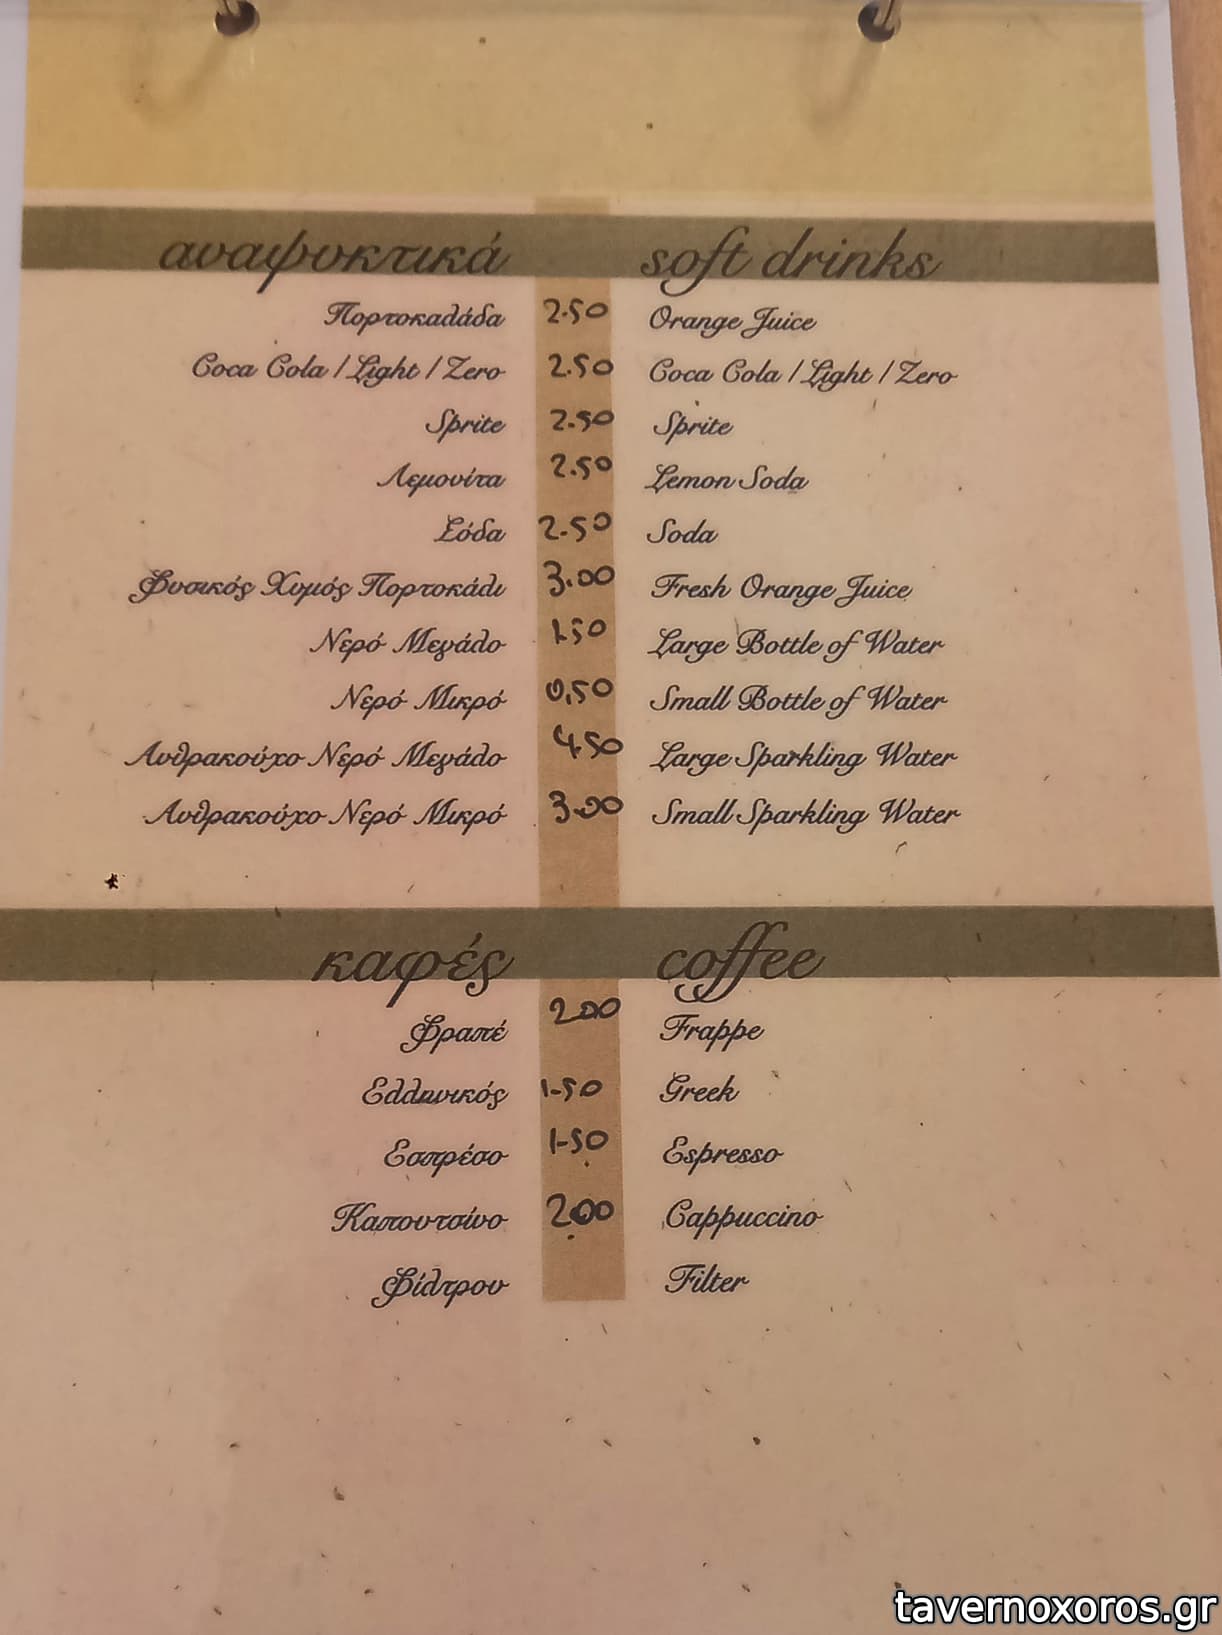 αναψυκτικά soft drinks
Πορτοκαλάδα 2.50 Orange Juice
Coca Cola / Light / Zero 2.50 Coca Cola / Light / Zero
Sprite 2.50 Sprite
Λεμονίτα 2.50 Lemon Soda
Σόδα 2.50 Soda
Φυσικός Χυμός Πορτοκάλι 3.00 Fresh Orange Juice
Νερό Μεγάλο 1.50 Large Bottle of Water
Νερό Μικρό 0,50 Small Bottle of Water
Ανθρακούχο Νερό Μεγάλο 4.50 Large Sparkling Water
Ανθρακούχο Νερό Μικρό 3.00 Small Sparkling Water
καφές coffee
Φραπέ 2.00 Frappe
Ελληνικός 1-50 Greek
Εσπρέσο 1-50 Espresso
Καπουτσίνο 2.00 Cappuccino
Φίλτρου Filter
tavernoxoros.gr